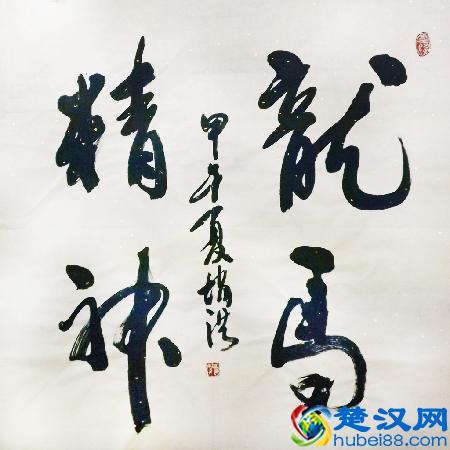 龍馬
精神
甲午夏
楚汉网
hubei88.com